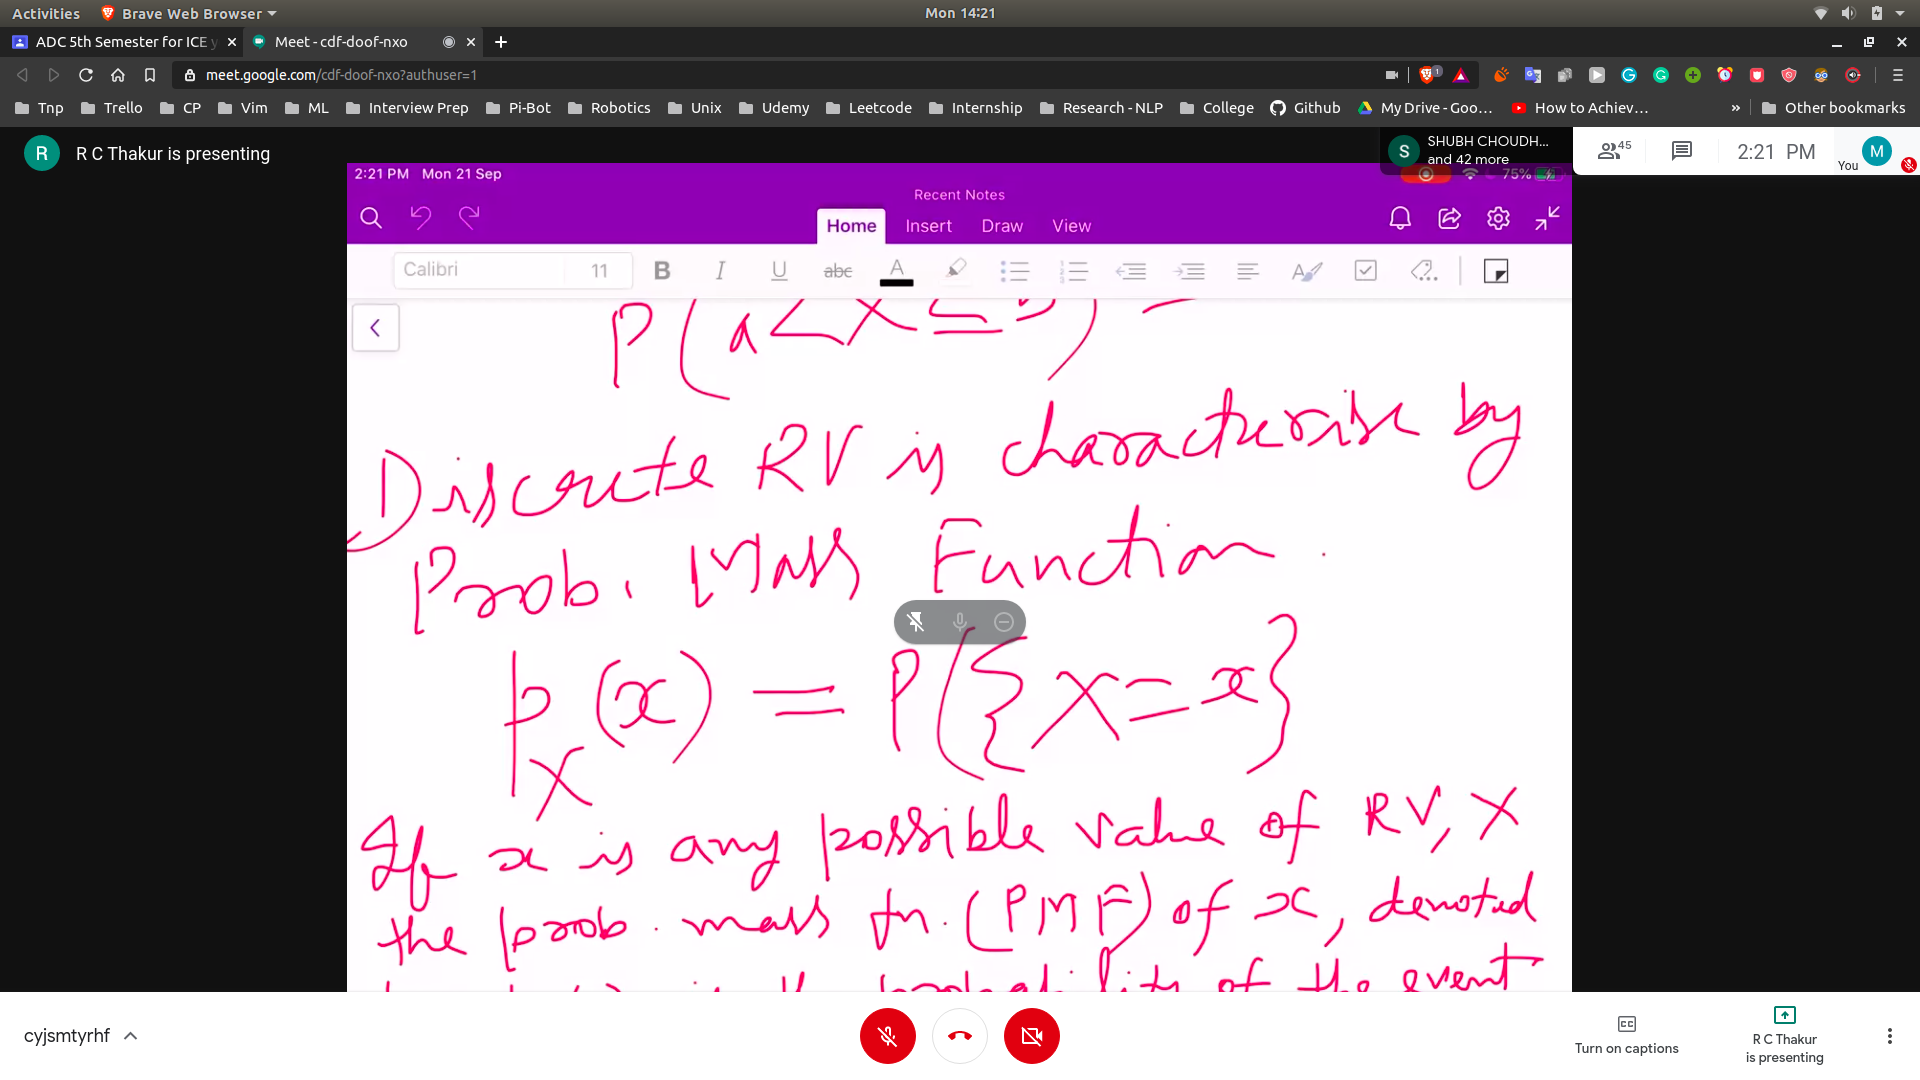 Activities Brave Web Browser Mon 14:21
ADC 5th Semester for ICE y Meet - cdf-doof-nxo
meet.google.com/cdf-doof-nxo?authuser=1
Tnp Trello CP Vim ML Interview Prep Pi-Bot Robotics Unix Udemy Leetcode Internship Research - NLP College Github My Drive - Goo... How to Achiev... » Other bookmarks
R R C Thakur is presenting
S SHUBH CHOUDH... and 42 more
45 2:21 PM You M
2:21 PM Mon 21 Sep 75%
Recent Notes
Home Insert Draw View
Calibri 11 B I U abc A
P(a<X≤b) =
Discrete RV is characterise by
Prob. Mass Function.
p_X(x) = P({X=x}
If x is any possible value of RV, X
the prob. mass fn. (PMF) of x, denoted
probability of the event
cyjsmtyrhf
Turn on captions
R C Thakur
is presenting